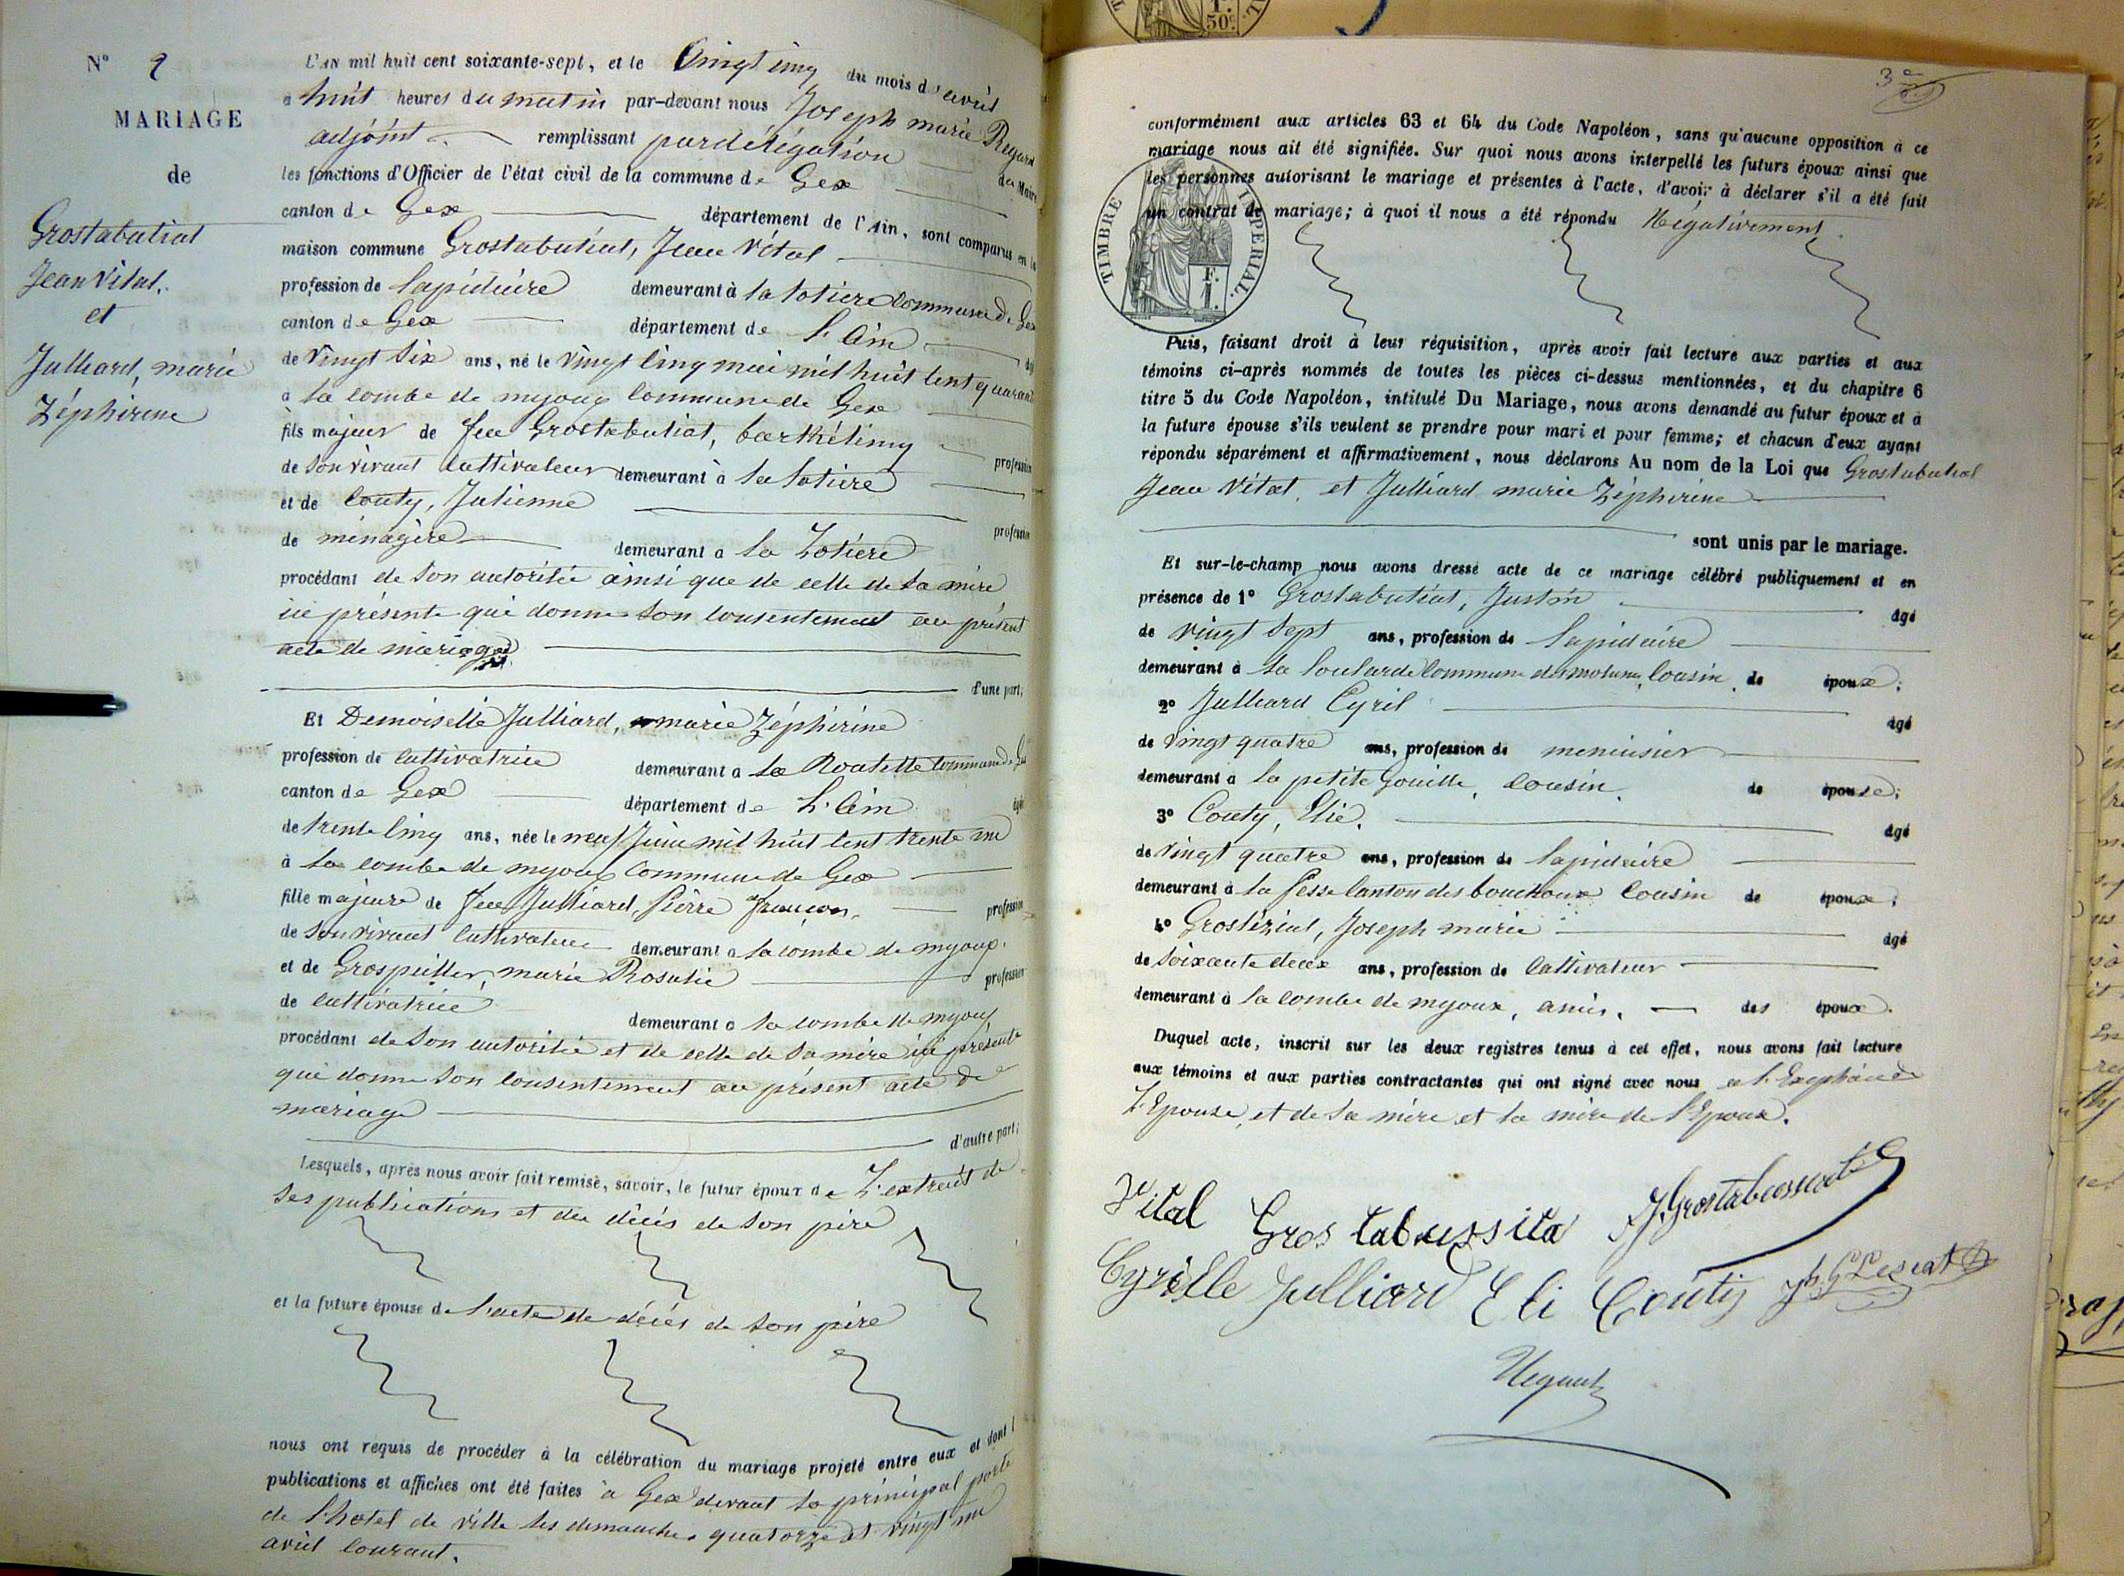 N° 9
MARIAGE
de
Grostabutiat
Jean Vital.
et
Julliard, marie
Zéphirine
L'AN mil huit cent soixante-sept, et le Vingt cinq du mois d'avril
a huit heures du matin par-devant nous Joseph marie Regard
adjoint remplissant par délégation du Maire
les fonctions d'Officier de l'état civil de la commune de Gex
canton de Gex département de l'Ain, sont comparus en la
maison commune Grostabutiat, Jean Vital
profession de lapidaire demeurant à la Lotiere Commune de Gex
canton de Gex département de L'Ain
de Vingt Six ans, né le Vingt Cinq mai mil huit Cent quarante
à la combe de myoux Commune de Gex
fils majeur de feu Grostabutiat, barthélimy profession
de Son vivant Cultivateur demeurant à la Lotiere
et de Couty, Julienne profession
de ménagère demeurant à la Lotiere
procédant de Son autoritée ainsi que de celle de Sa mère
ici présente qui donne Son Consentement au présent
acte de mariage
d'une part;
Et Demoiselle Julliard, marie Zéphirine
profession de Cultivatrice demeurant à la Routette Commune de Gex
canton de Gex département de L'Ain âgée
de trente Cinq ans, née le neuf Juin mil huit Cent trente un
à la combe de myoux Commune de Gex
fille majeure de feu Julliard, Pierre françois. profession
de Son vivant Cultivateur demeurant à la combe de myoux.
et de Grospellier, marie Rosalie profession
de Cultivatrice demeurant à la combe de myoux
procédant de Son autoritée et de celle de Sa mère ici présente
qui donne Son Consentement au présent acte de
mariage
d'autre part;
Lesquels, après nous avoir fait remise, savoir, le futur époux de L'extrait de
Ses publications et du décès de Son père
et la future épouse de l'acte de décés de Son père
nous ont requis de procéder à la célébration du mariage projeté entre eux et dont l
publications et affiches ont été faites à Gex devant la principal porte
de l'hotel de ville les dimanches quatorze et vingt un
avril Courant.
3e
conformément aux articles 63 et 64 du Code Napoléon, sans qu'aucune opposition à ce
mariage nous ait été signifiée. Sur quoi nous avons interpellé les futurs époux ainsi que
les personnes autorisant le mariage et présentes à l'acte, d'avoir à déclarer s'il a été fait
un contrat de mariage; à quoi il nous a été répondu Négativement.
TIMBRE IMPERIAL.
F.
1.
Puis, faisant droit à leur réquisition, après avoir fait lecture aux parties et aux
témoins ci-après nommés de toutes les pièces ci-dessus mentionnées, et du chapitre 6
titre 5 du Code Napoléon, intitulé Du Mariage, nous avons demandé au futur époux et à
la future épouse s'ils veulent se prendre pour mari et pour femme; et chacun d'eux ayant
répondu séparément et affirmativement, nous déclarons Au nom de la Loi que Grostabutiat
Jean Vital, et Julliard marie Zéphirine
sont unis par le mariage.
Et sur-le-champ nous avons dressé acte de ce mariage célébré publiquement et en
présence de 1° Grostabutiat, Justin âgé
de vingt Sept ans, profession de lapidaire
demeurant à Commune de cousin de époux;
2° Julliard Cyril âgé
de vingt quatre ans, profession de menuisier
demeurant à la petite Gouille, cousin. de épouse;
3° Couty, Elie. âgé
de Vingt quatre ans, profession de lapidaire
demeurant à la Pesse Canton des bouchoux Cousin de époux;
4° Grostéziat, Joseph marie âgé
de Soixante deux ans, profession de Cultivateur
demeurant à la combe de myoux, amis, des époux.
Duquel acte, inscrit sur les deux registres tenus à cet effet, nous avons fait lecture
aux témoins et aux parties contractantes qui ont signé avec nous a l'Exeption de
L'Epouse, et de Sa mère et la mère de l'Epoux.
Vital Gros tabussita
Cyrille Julliard Eli Coutiy
Regard